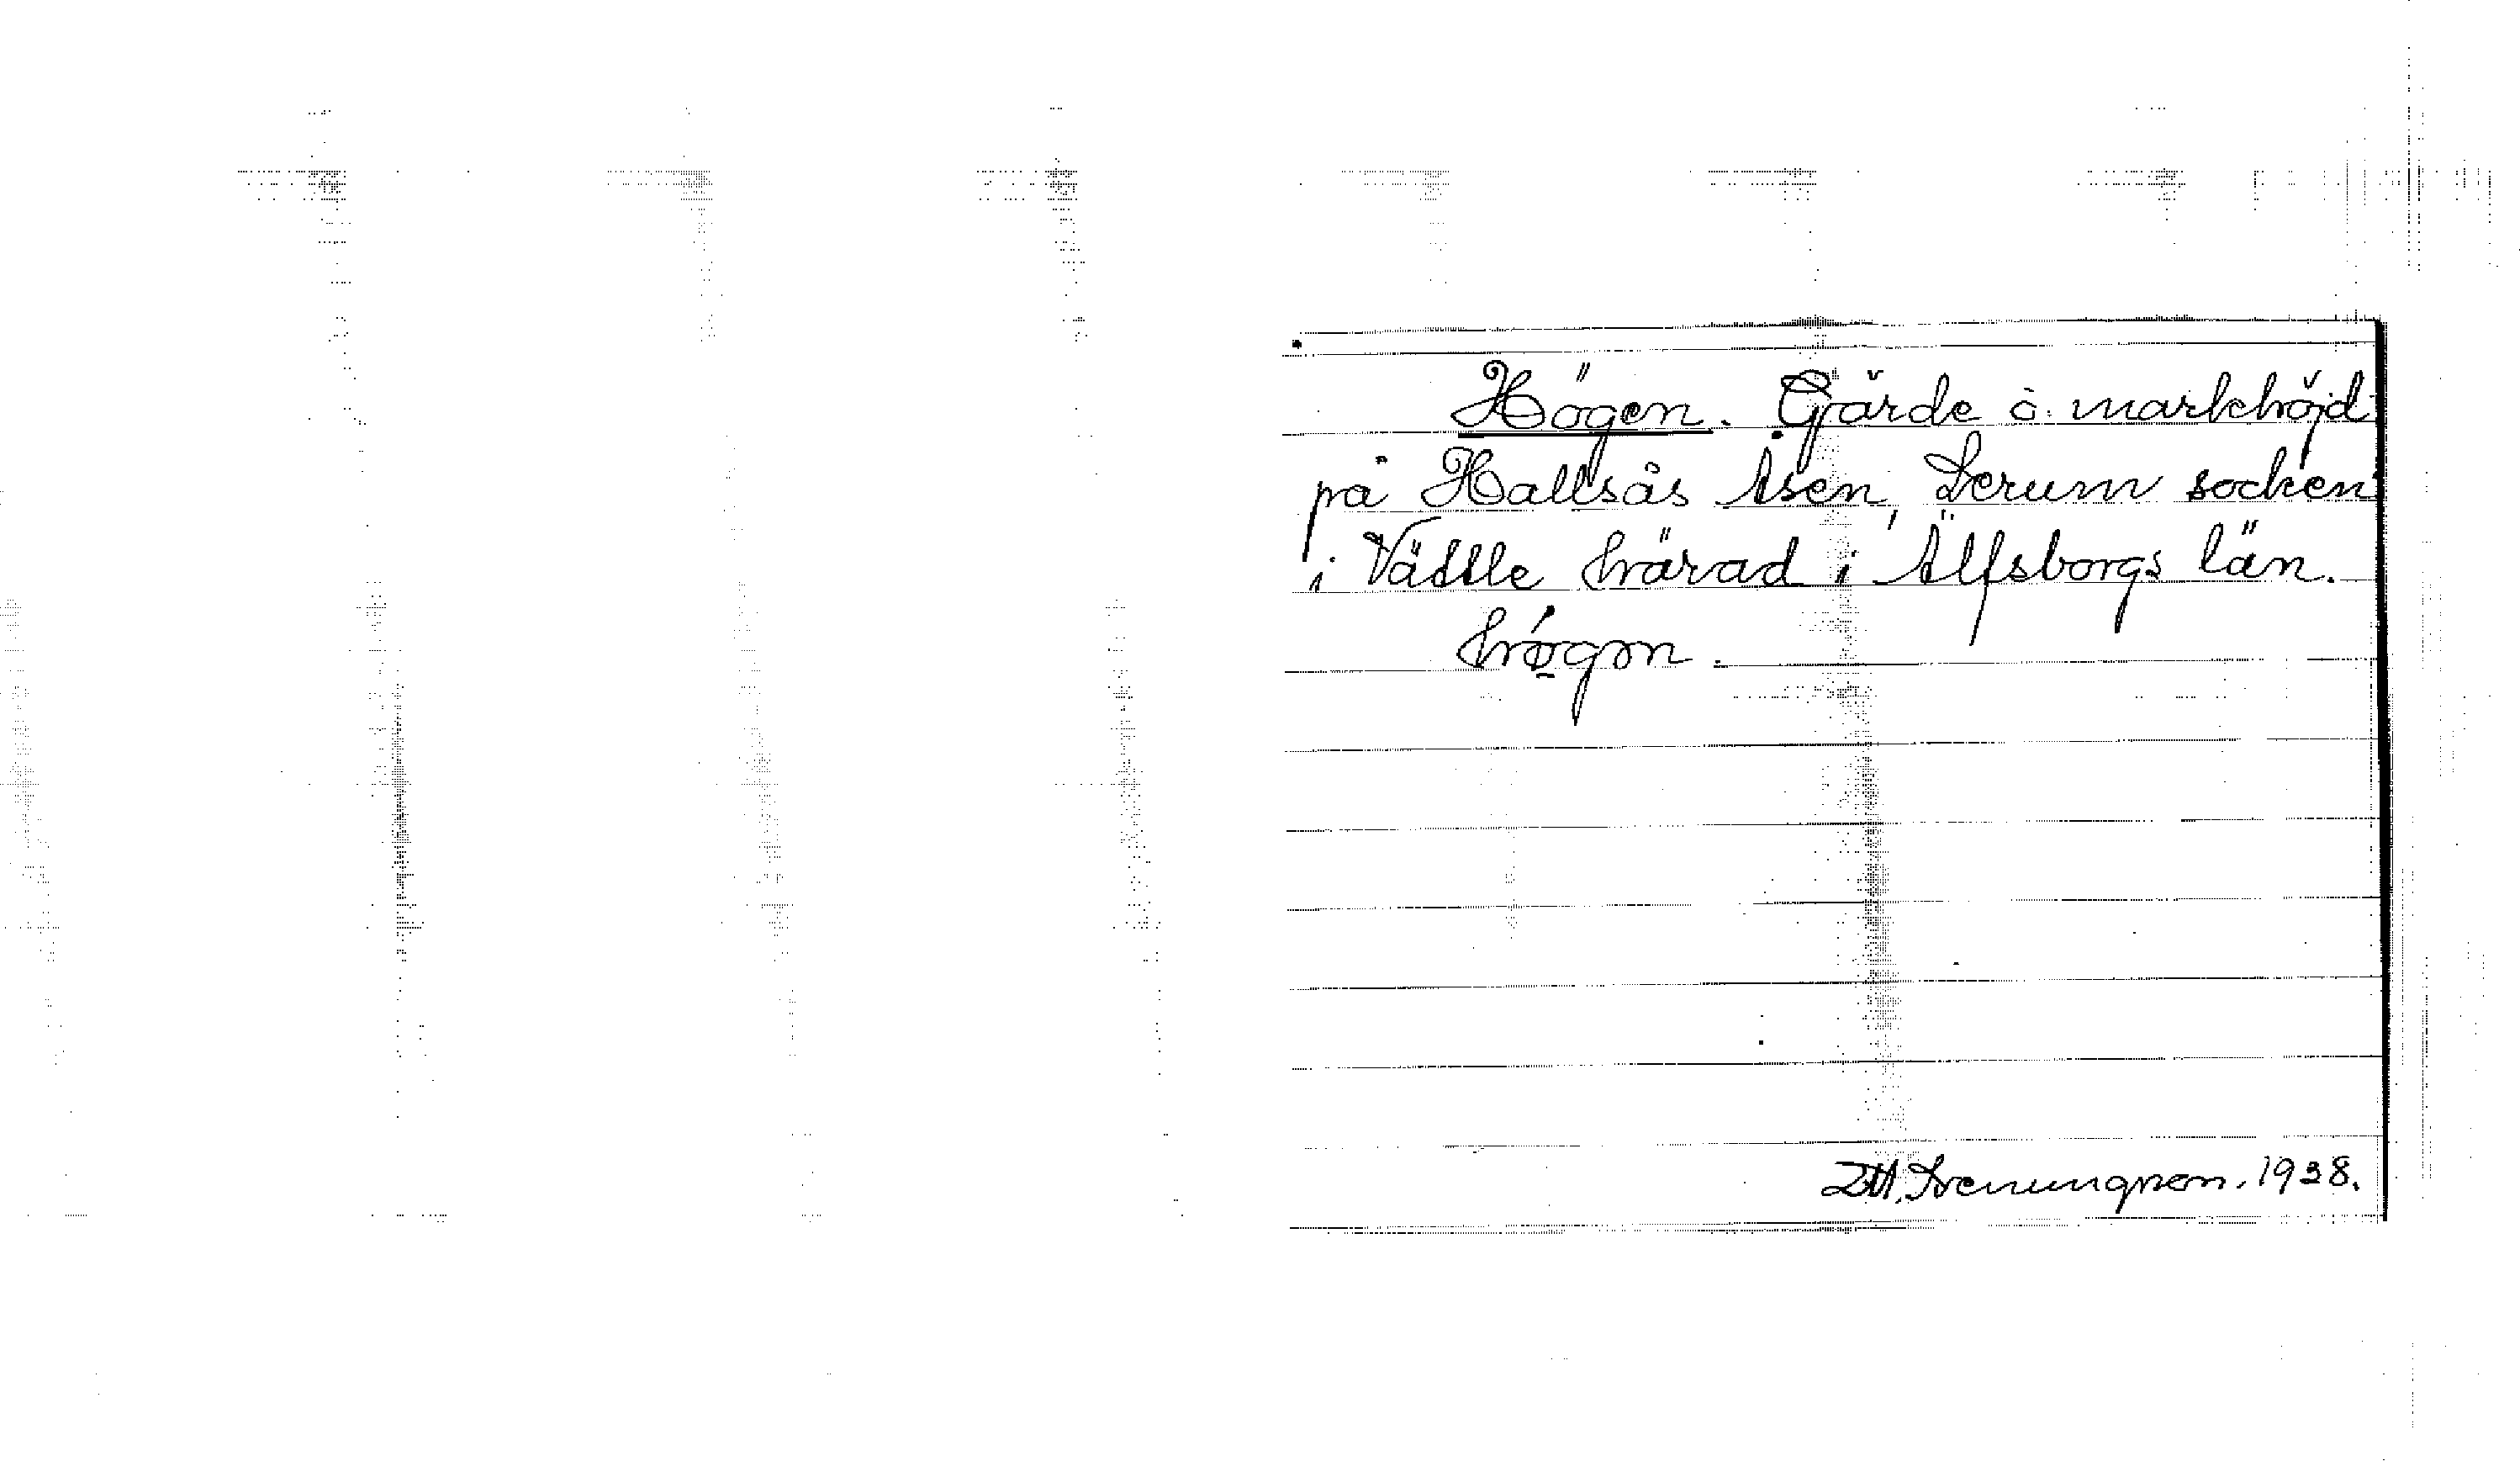 Högen. Gärde o. markhöjd
på Hallsås Åsen, Lerum socken
i Vättle härad i Älfsborgs län.
högɔn.
1938.